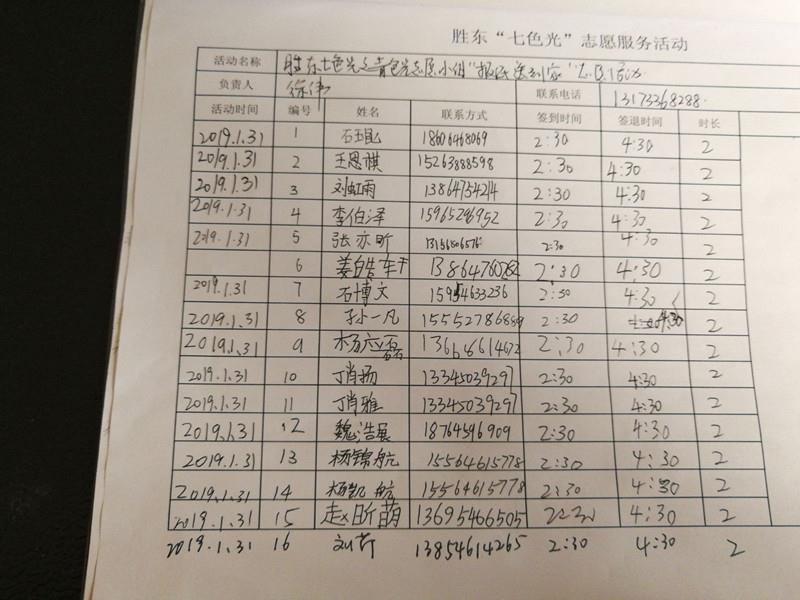 胜东“七色光”志愿服务活动
活动名称 胜东七色光之青色光志愿小组
负责人 徐伟 联系电话 13173368288
活动时间 编号 姓名 联系方式 签到时间 签退时间 时长
2019.1.31 1 2:30 4:30 2
2019.1.31 2 王恩祺 15263888598 2:30 4:30 2
2019.1.31 3 刘虹雨 13864754214 2:30 4:30 2
2019.1.31 4 李伯泽 15965296952 2:30 4:30 2
2019.1.31 5 张亦昕 2:30 4:30 2
6 2:30 4:30 2
2019.1.31 7 石博文 15954633236 2:30 4:30 2
2019.1.31 8 孙一凡 2:30 4:30 2
2019.1.31 9 杨应磊 2:30 4:30 2
2019.1.31 10 丁肖扬 13345039297 2:30 4:30 2
2019.1.31 11 丁肖雅 13345039297 2:30 4:30 2
2019.1.31 12 魏浩展 18764596909 2:30 4:30 2
2019.1.31 13 杨锦航 15564615778 2:30 4:30 2
2019.1.31 14 杨凯航 15564615778 2:30 4:30 2
2019.1.31 15 赵昕萌 13695466505 2:30 4:30 2
2019.1.31 16 刘芹 13854614265 2:30 4:30 2